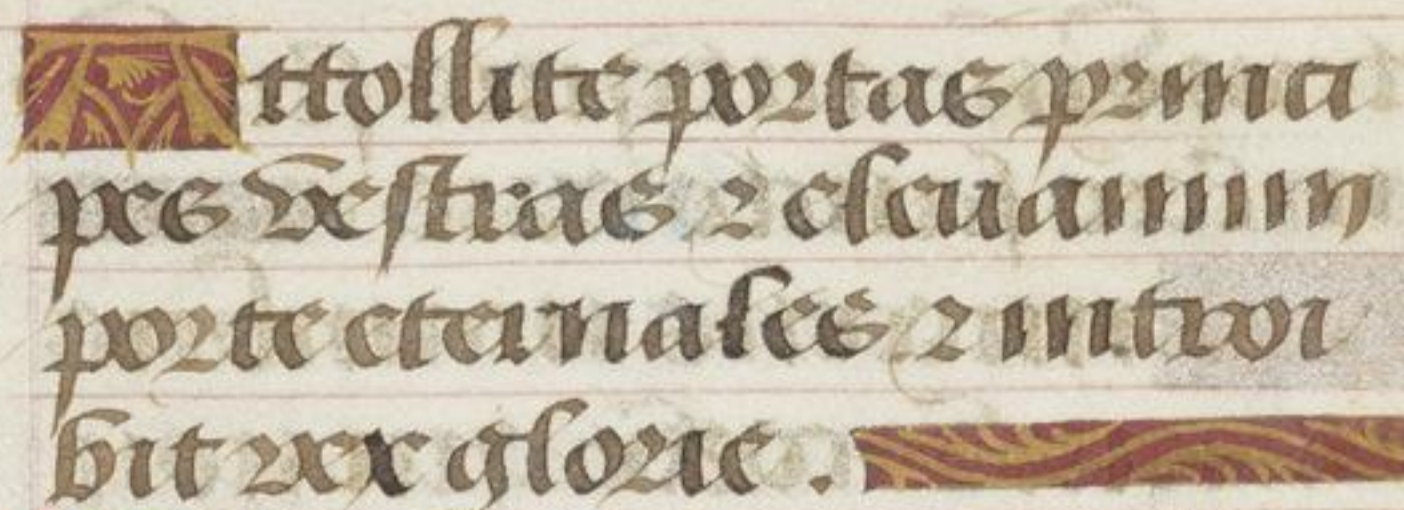 Attollite portas princi
pes vestras ⁊ eleuamini
porte eternales ⁊ introi
bit rex glorie .